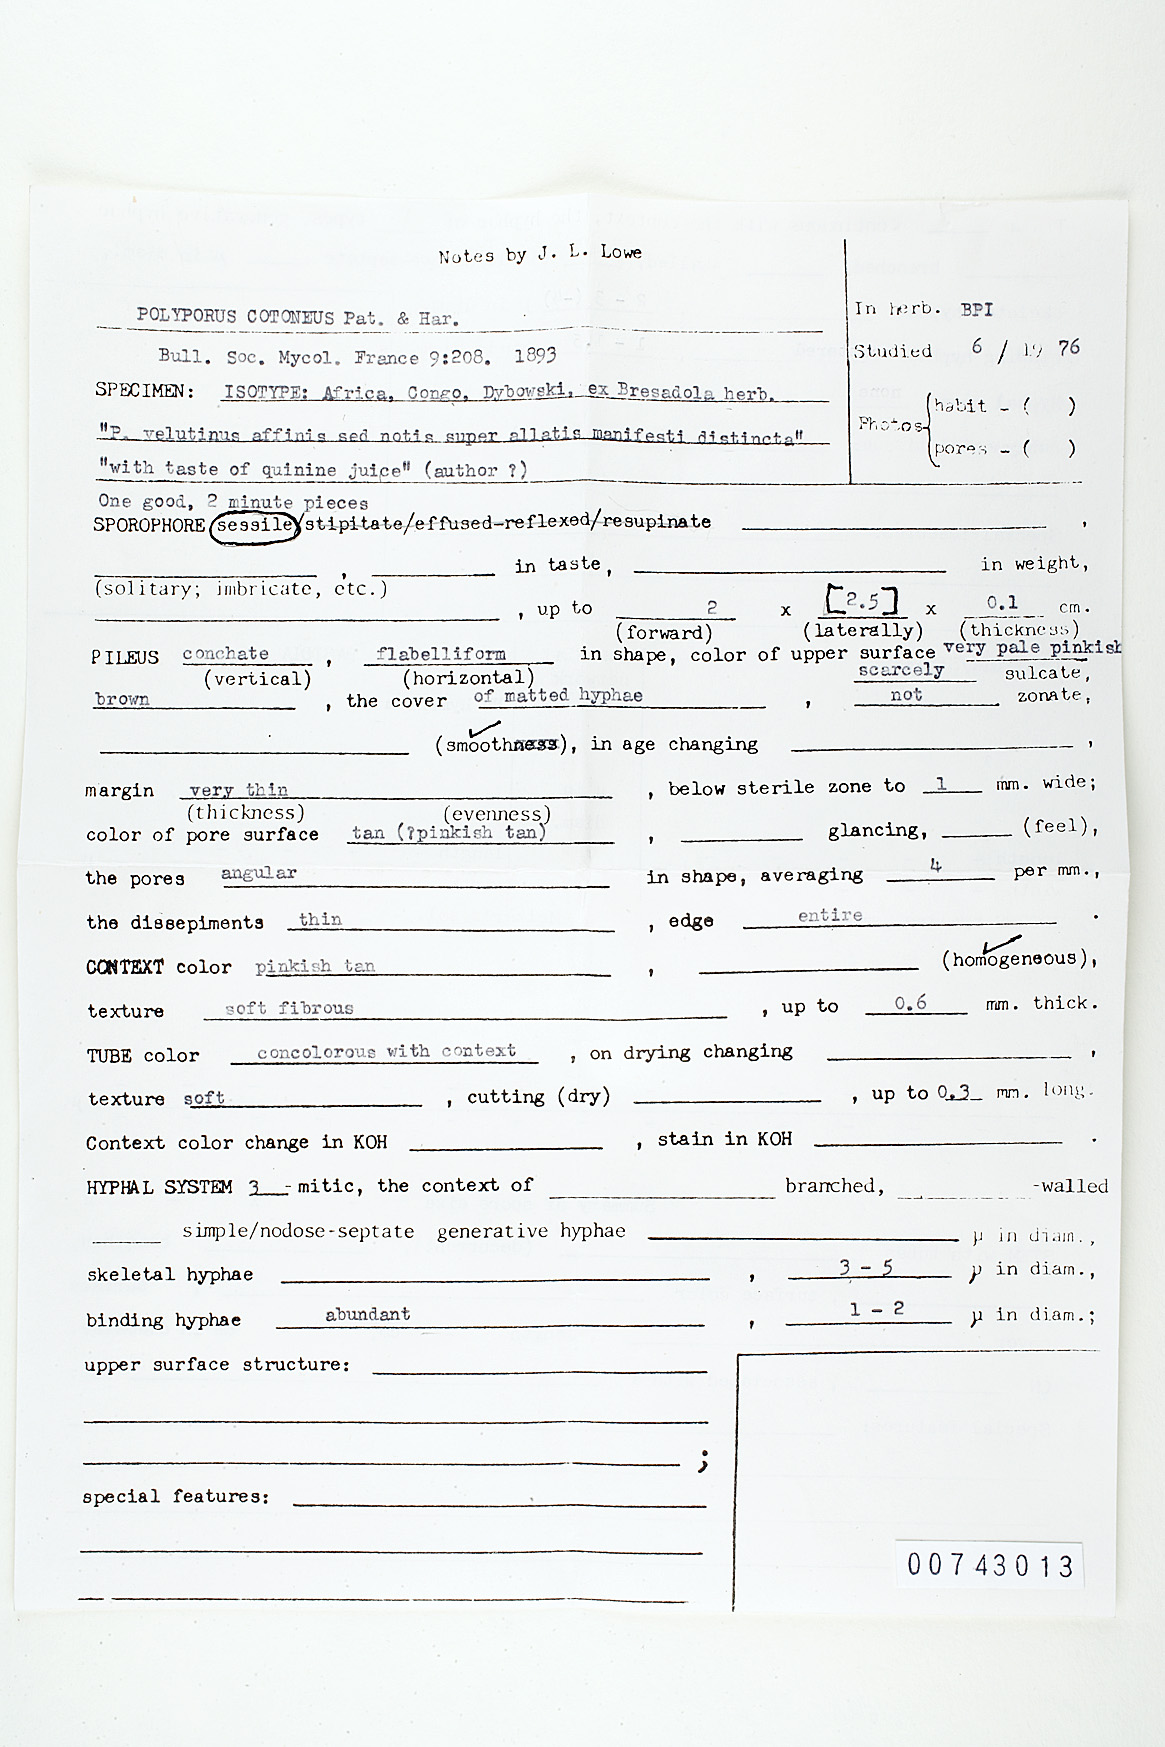 Notes by J. L. Lowe
In herb. BPI
POLYPORUS COTONEUS Pat. & Har.
Studied 6 / 19 76
Bull. Soc. Mycol. France 9:208. 1893
SPECIMEN: ISOTYPE: Africa, Congo, Dybowski, ex Bresadola herb.
Photos { habit - ( )
pores - ( )
"P. velutinus affinis sed notis super allatis manifesti distincta"
"with taste of quinine juice" (author ?)
One good, 2 minute pieces
SPOROPHORE sessile/stipitate/effused-reflexed/resupinate ,
, in taste, in weight,
(solitary; imbricate, etc.)
, up to 2 x [2.5] x 0.1 cm.
(forward) (laterally) (thickness)
PILEUS conchate , flabelliform in shape, color of upper surface very pale pinkish
(vertical) (horizontal) scarcely sulcate,
brown , the cover of matted hyphae , not zonate,
(smoothness), in age changing ,
margin very thin , below sterile zone to 1 mm. wide;
(thickness) (evenness)
color of pore surface tan (?pinkish tan) , glancing, (feel),
the pores angular in shape, averaging 4 per mm.,
the dissepiments thin , edge entire .
CONTEXT color pinkish tan , (homogeneous),
texture soft fibrous , up to 0.6 mm. thick.
TUBE color concolorous with context , on drying changing ,
texture soft , cutting (dry) , up to 0.3 mm. long.
Context color change in KOH , stain in KOH .
HYPHAL SYSTEM 3 -mitic, the context of branched, -walled
simple/nodose-septate generative hyphae µ in diam.,
skeletal hyphae , 3 - 5 µ in diam.,
binding hyphae abundant , 1 - 2 µ in diam.;
upper surface structure:
;
special features:
00743013